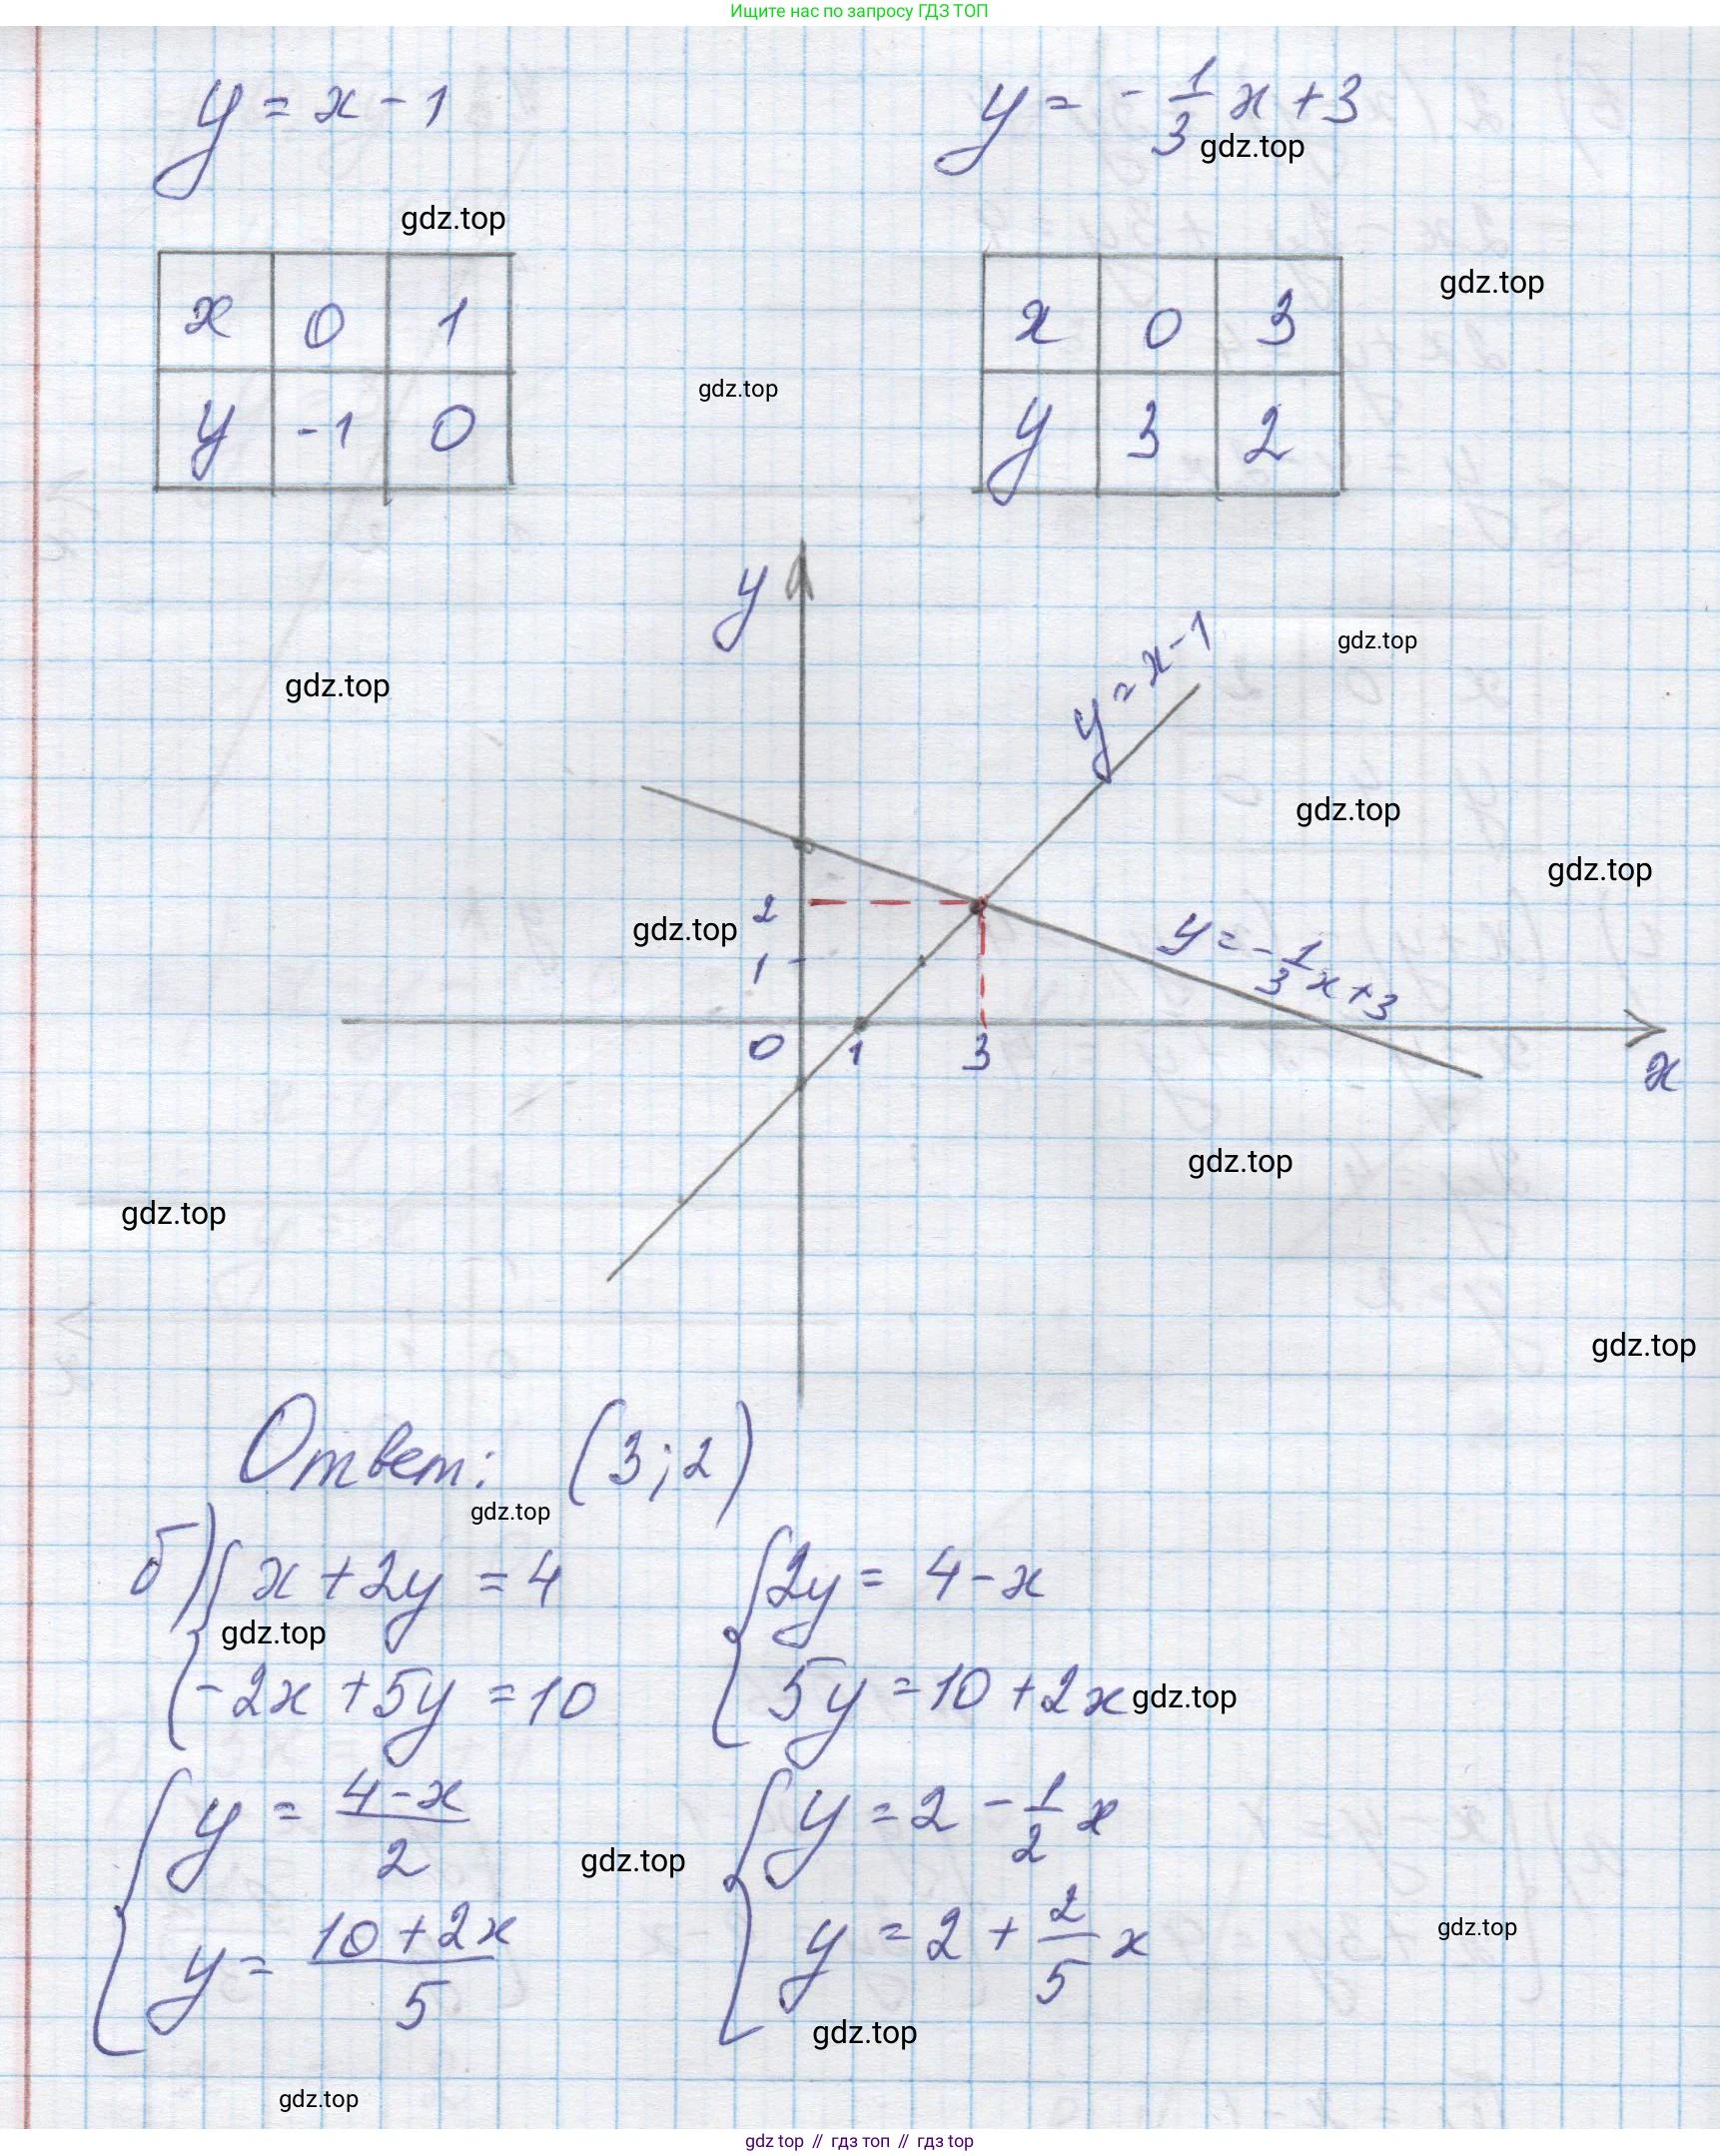 Ищите нас по запросу ГДЗ ТОП
y = x - 1
y = - 1/3 x + 3
gdz.top
gdz.top
x 0 1
y -1 0
gdz.top
x 0 3
y 3 2
gdz.top
y
y = x - 1
gdz.top
gdz.top
gdz.top
gdz.top
2
gdz.top
1
y = - 1/3 x + 3
0 1 3
x
gdz.top
gdz.top
gdz.top
Ответ: (3; 2)
gdz.top
б) { x + 2y = 4
{ 2y = 4 - x
gdz.top
-2x + 5y = 10
5y = 10 + 2x
gdz.top
{ y = (4 - x)/2
{ y = 2 - 1/2 x
gdz.top
y = (10 + 2x)/5
y = 2 + 2/5 x
gdz.top
gdz.top
gdz.top
gdz top // гдз топ // gdz top